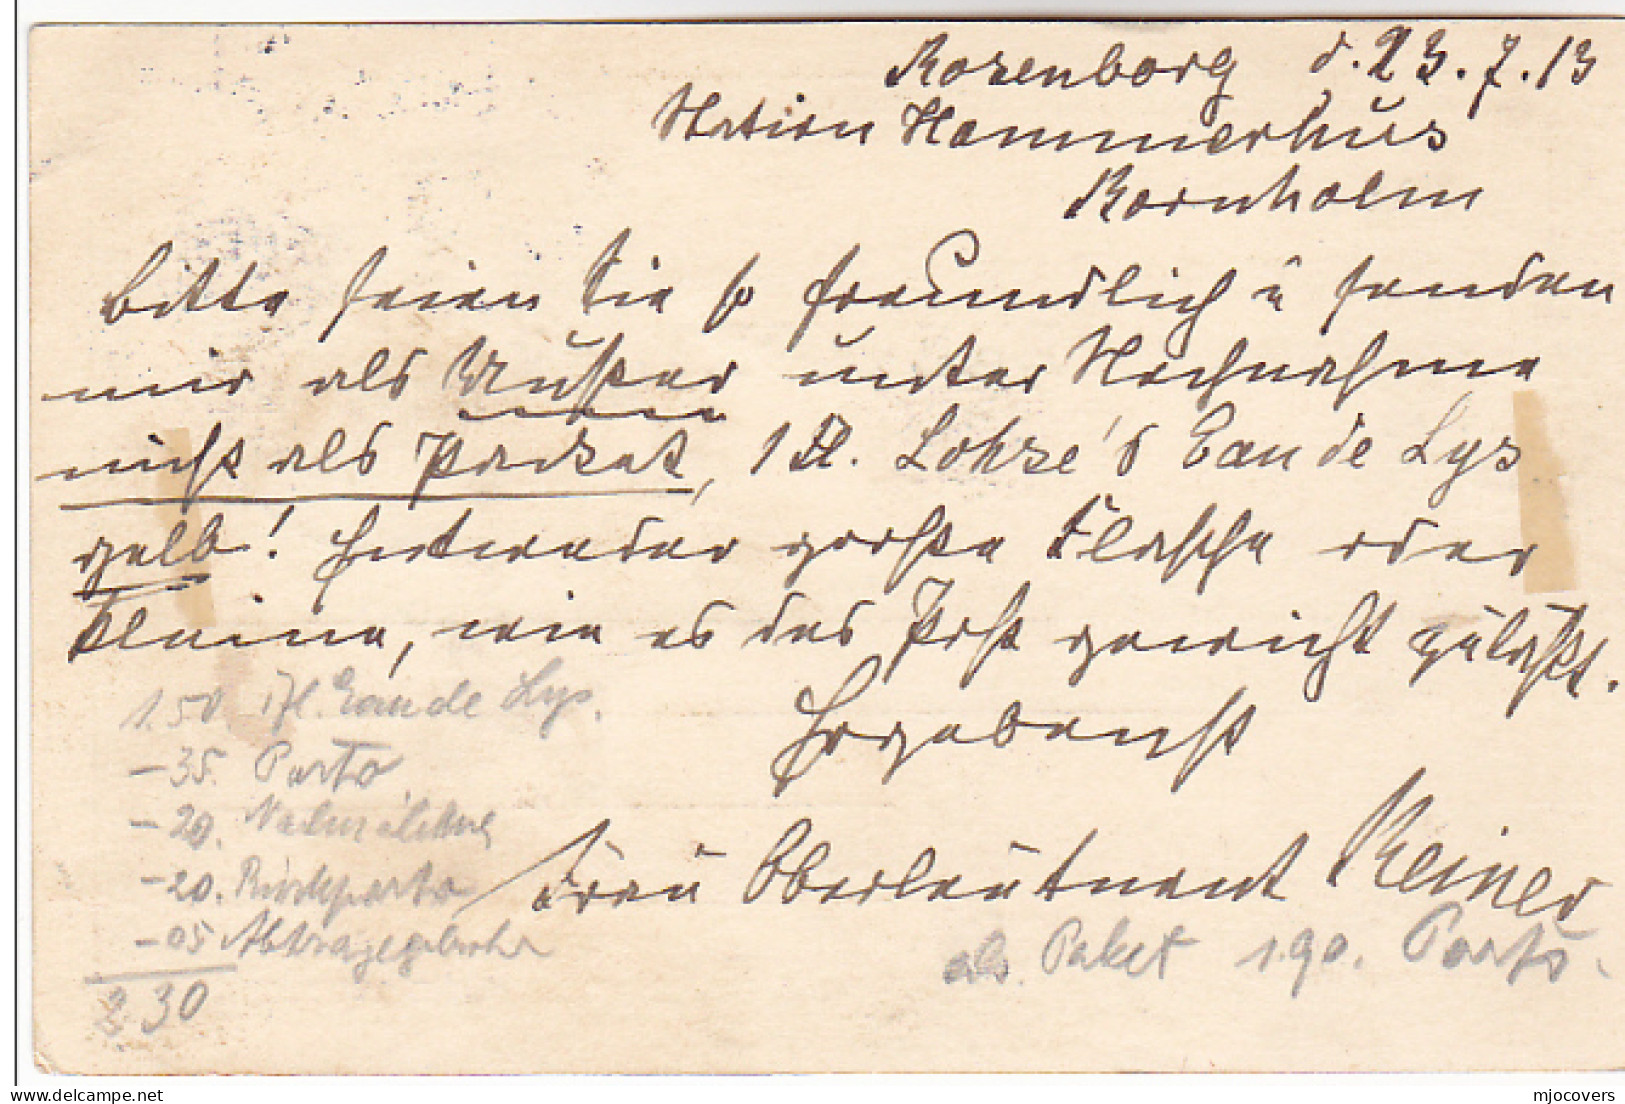 Rosenborg d. 23.7.13
Station Hammerhus
Bornholm
Bitte seien Sie so freundlich u senden
mir als Muster unter Nachnahme
nicht als Packet, 1 Fl. Lohse's Eau de Lys
gelb! Entweder große Flasche oder
kleine, wie es das Post gewicht zuläßt.
Ergebenst
Frau Oberleutnant Reiner
1.50 1 Fl. Eau de Lys.
-35. Porto
-20.
-20. Rückporto
-05 Abtragegebühr
2 30
als Paket 1.90. Porto.
delcampe.net
mjocovers